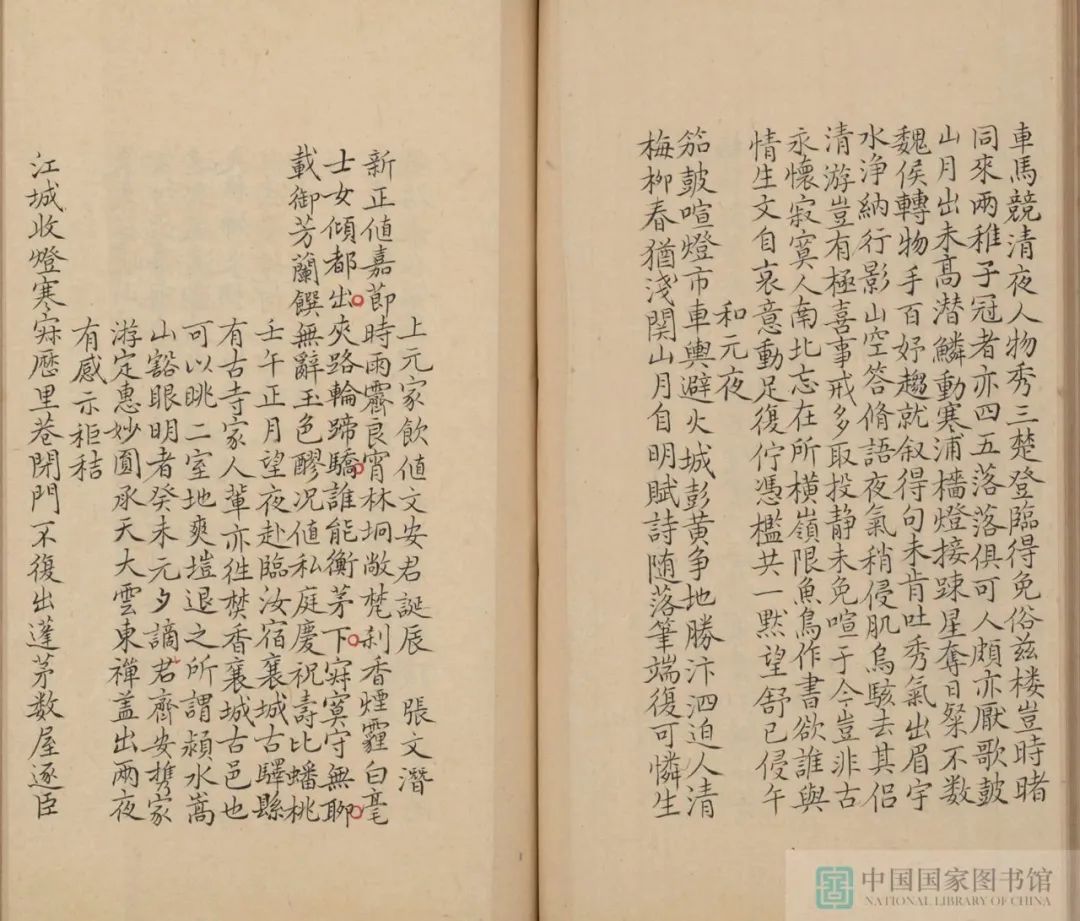 車馬競清夜人物秀三楚登臨得免俗茲楼豈時睹
同來兩稚子冠者亦四五落落俱可人頗亦厭歌鼓
山月出未高潜鱗動寒浦檣燈接疎星奪日粲不数
魏侯轉物手百妤趨就叙得句未肯吐秀氣出眉宇
水净納行影山空答脩語夜氣稍侵肌烏駭去其侶
清游豈有極喜事戒多取投静未免喧于今豈非古
永懷寂寞人南北忘在所横嶺限魚鳥作書欲誰與
情生文自哀意動足復佇憑檻共一黙望舒已侵午
和元夜
笳鼓喧燈市車輿避火城彭黄争地勝汴泗迫人清
梅柳春猶淺関山月自明賦詩随落筆端復可憐生
上元家飲値文安君誕辰 張文潛
新正値嘉莭時雨霽良宵林坰敞梵刹香煙霾白毫
士女傾都出夾路輪蹄驕誰能衡茅下寂寞守無聊
載御芳蘭饌無辭玉色醪况値私庭慶祝壽比蟠桃
壬午正月望夜赴臨汝宿襄城古驛縣
有古寺家人輩亦徃焚香襄城古邑也
可以眺二室地爽塏退之所謂潁水嵩
山豁眼明者癸未元夕謫君齊安携家
游定惠妙圓承天大雲東禪盖出兩夜
有感示秬秸
江城收燈寒寂歷里巷閉門不復出蓬茅数屋逐臣
中国国家图书馆
NATIONAL LIBRARY OF CHINA